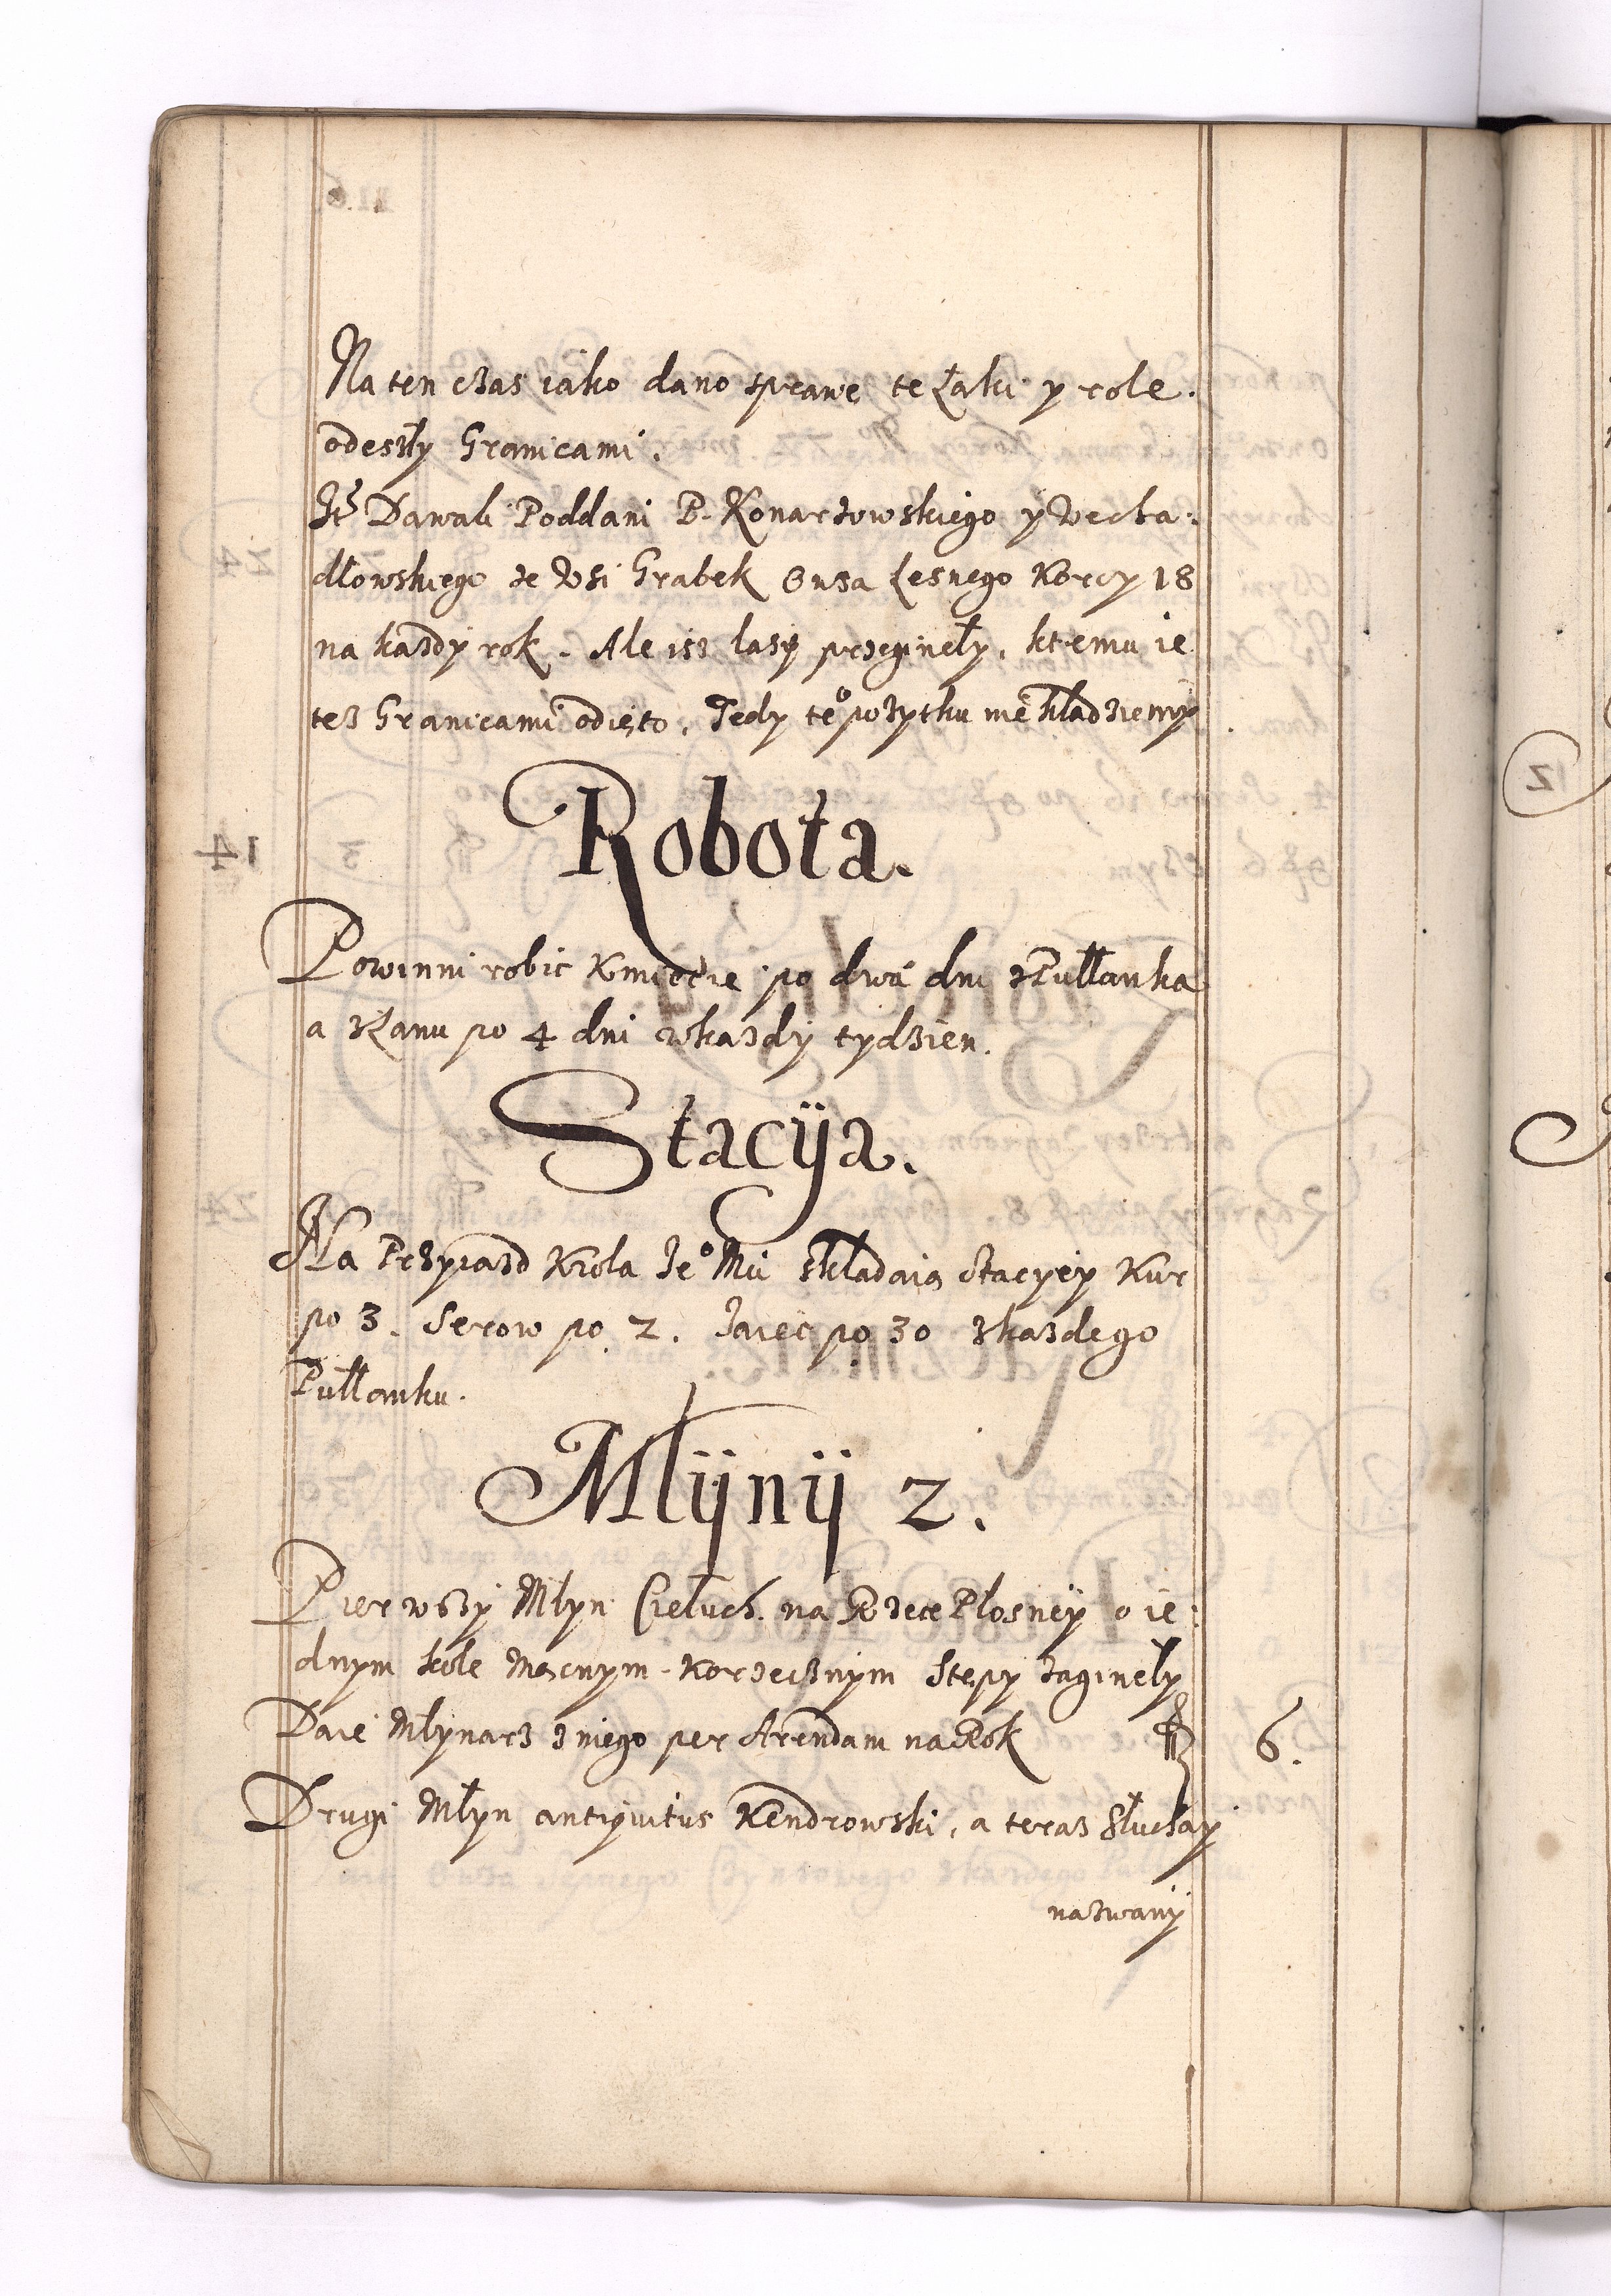 Na ten czas iako dano sprawe te Łąki y role.
odeszły Granicami.
Ite Dawali Poddani P. Konarzowskiego y Wecha:
dłowskiego ze Wsi Grabek Owsa Lesnego Korcy 18
na kazdy rok. Ale isz lasy przeginęły, ktemu ie
tesz Granicami odięto, Tedy te° pozytku nie kładziemy.
Robota.
Powinni robic Kmiecie po dwa dni z Pułłanka
a z Łanu po 4 dni wkazdy tydzien.
Stacÿa.
Na Przyiazd Krola Je° Mci składaią Stacyey Kur
po 3. Serow po 2. Jaiec po 30 zkazdego
Pułłanku.
Młÿnÿ 2.
Pierwszy Młyn Cieluch na Rzece Płosney o ie:
dnym kole Mącnym. Korzecznym Stępy zaginęły
Daie Młynarz z niego per Arendam na Rok fl 6.
Drugi Młyn antiquitus Kendrowski, a teraz Słuchay
nazwany
12